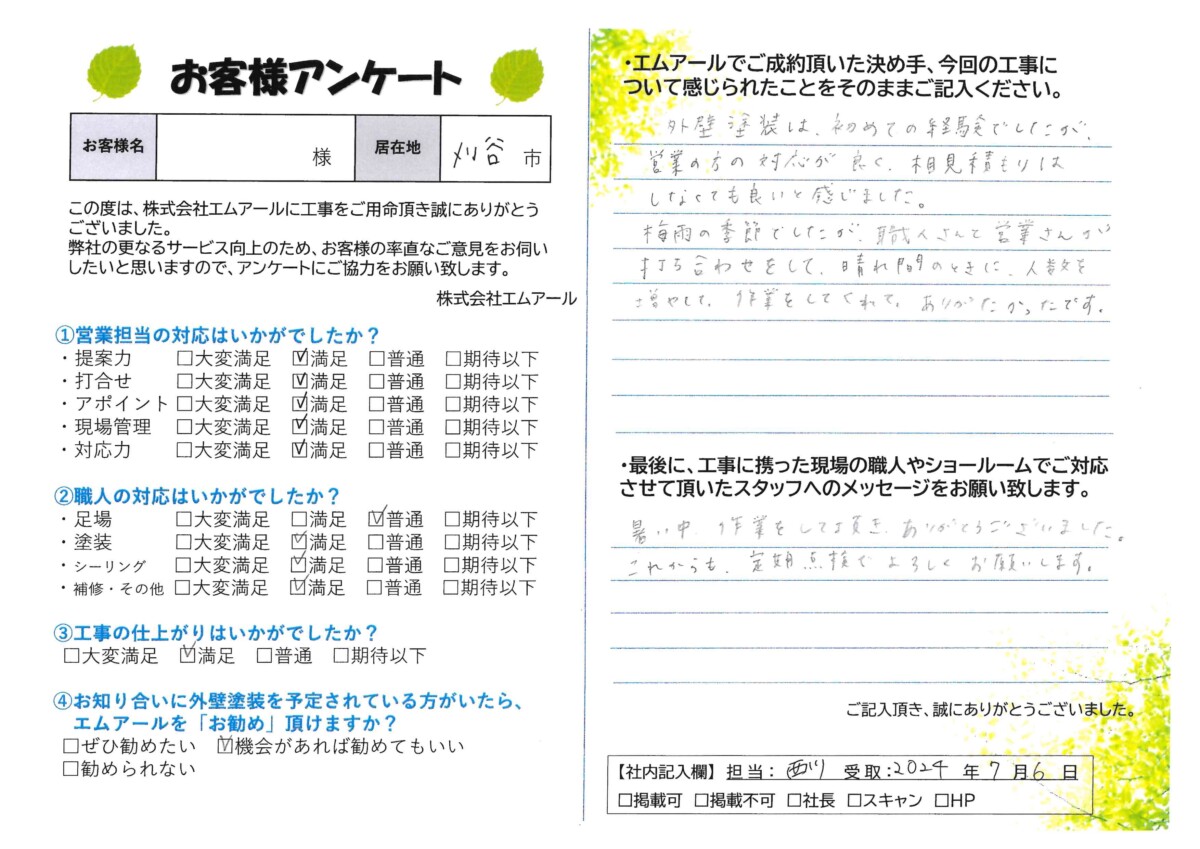 お客様アンケート
お客様名 様 居在地 刈谷 市
この度は、株式会社エムアールに工事をご用命頂き誠にありがとう
ございました。
弊社の更なるサービス向上のため、お客様の率直なご意見をお伺い
したいと思いますので、アンケートにご協力をお願い致します。
株式会社エムアール
①営業担当の対応はいかがでしたか?
・提案力 □大変満足 ☑満足 □普通 □期待以下
・打合せ □大変満足 ☑満足 □普通 □期待以下
・アポイント □大変満足 ☑満足 □普通 □期待以下
・現場管理 □大変満足 ☑満足 □普通 □期待以下
・対応力 □大変満足 ☑満足 □普通 □期待以下
②職人の対応はいかがでしたか?
・足場 □大変満足 □満足 ☑普通 □期待以下
・塗装 □大変満足 ☑満足 □普通 □期待以下
・シーリング □大変満足 ☑満足 □普通 □期待以下
・補修・その他 □大変満足 ☑満足 □普通 □期待以下
③工事の仕上がりはいかがでしたか?
□大変満足 ☑満足 □普通 □期待以下
④お知り合いに外壁塗装を予定されている方がいたら、
エムアールを「お勧め」頂けますか?
□ぜひ勧めたい ☑機会があれば勧めてもいい
□勧められない
・エムアールでご成約頂いた決め手、今回の工事に
ついて感じられたことをそのままご記入ください。
外壁塗装は、初めての経験でしたが、
営業の方の対応が良く、相見積もりは
しなくても良いと感じました。
梅雨の季節でしたが、職人さんと営業さんが
打ち合わせをして、晴れ間のときに、人数を
増やして、作業をしてくれて、ありがたかったです。
・最後に、工事に携った現場の職人やショールームでご対応
させて頂いたスタッフへのメッセージをお願い致します。
暑い中、作業をして頂き、ありがとうございました。
これからも、定期点検でよろしくお願いします。
ご記入頂き、誠にありがとうございました。
【社内記入欄】 担当: 西川 受取:2024 年 7 月 6 日
□掲載可 □掲載不可 □社長 □スキャン □HP